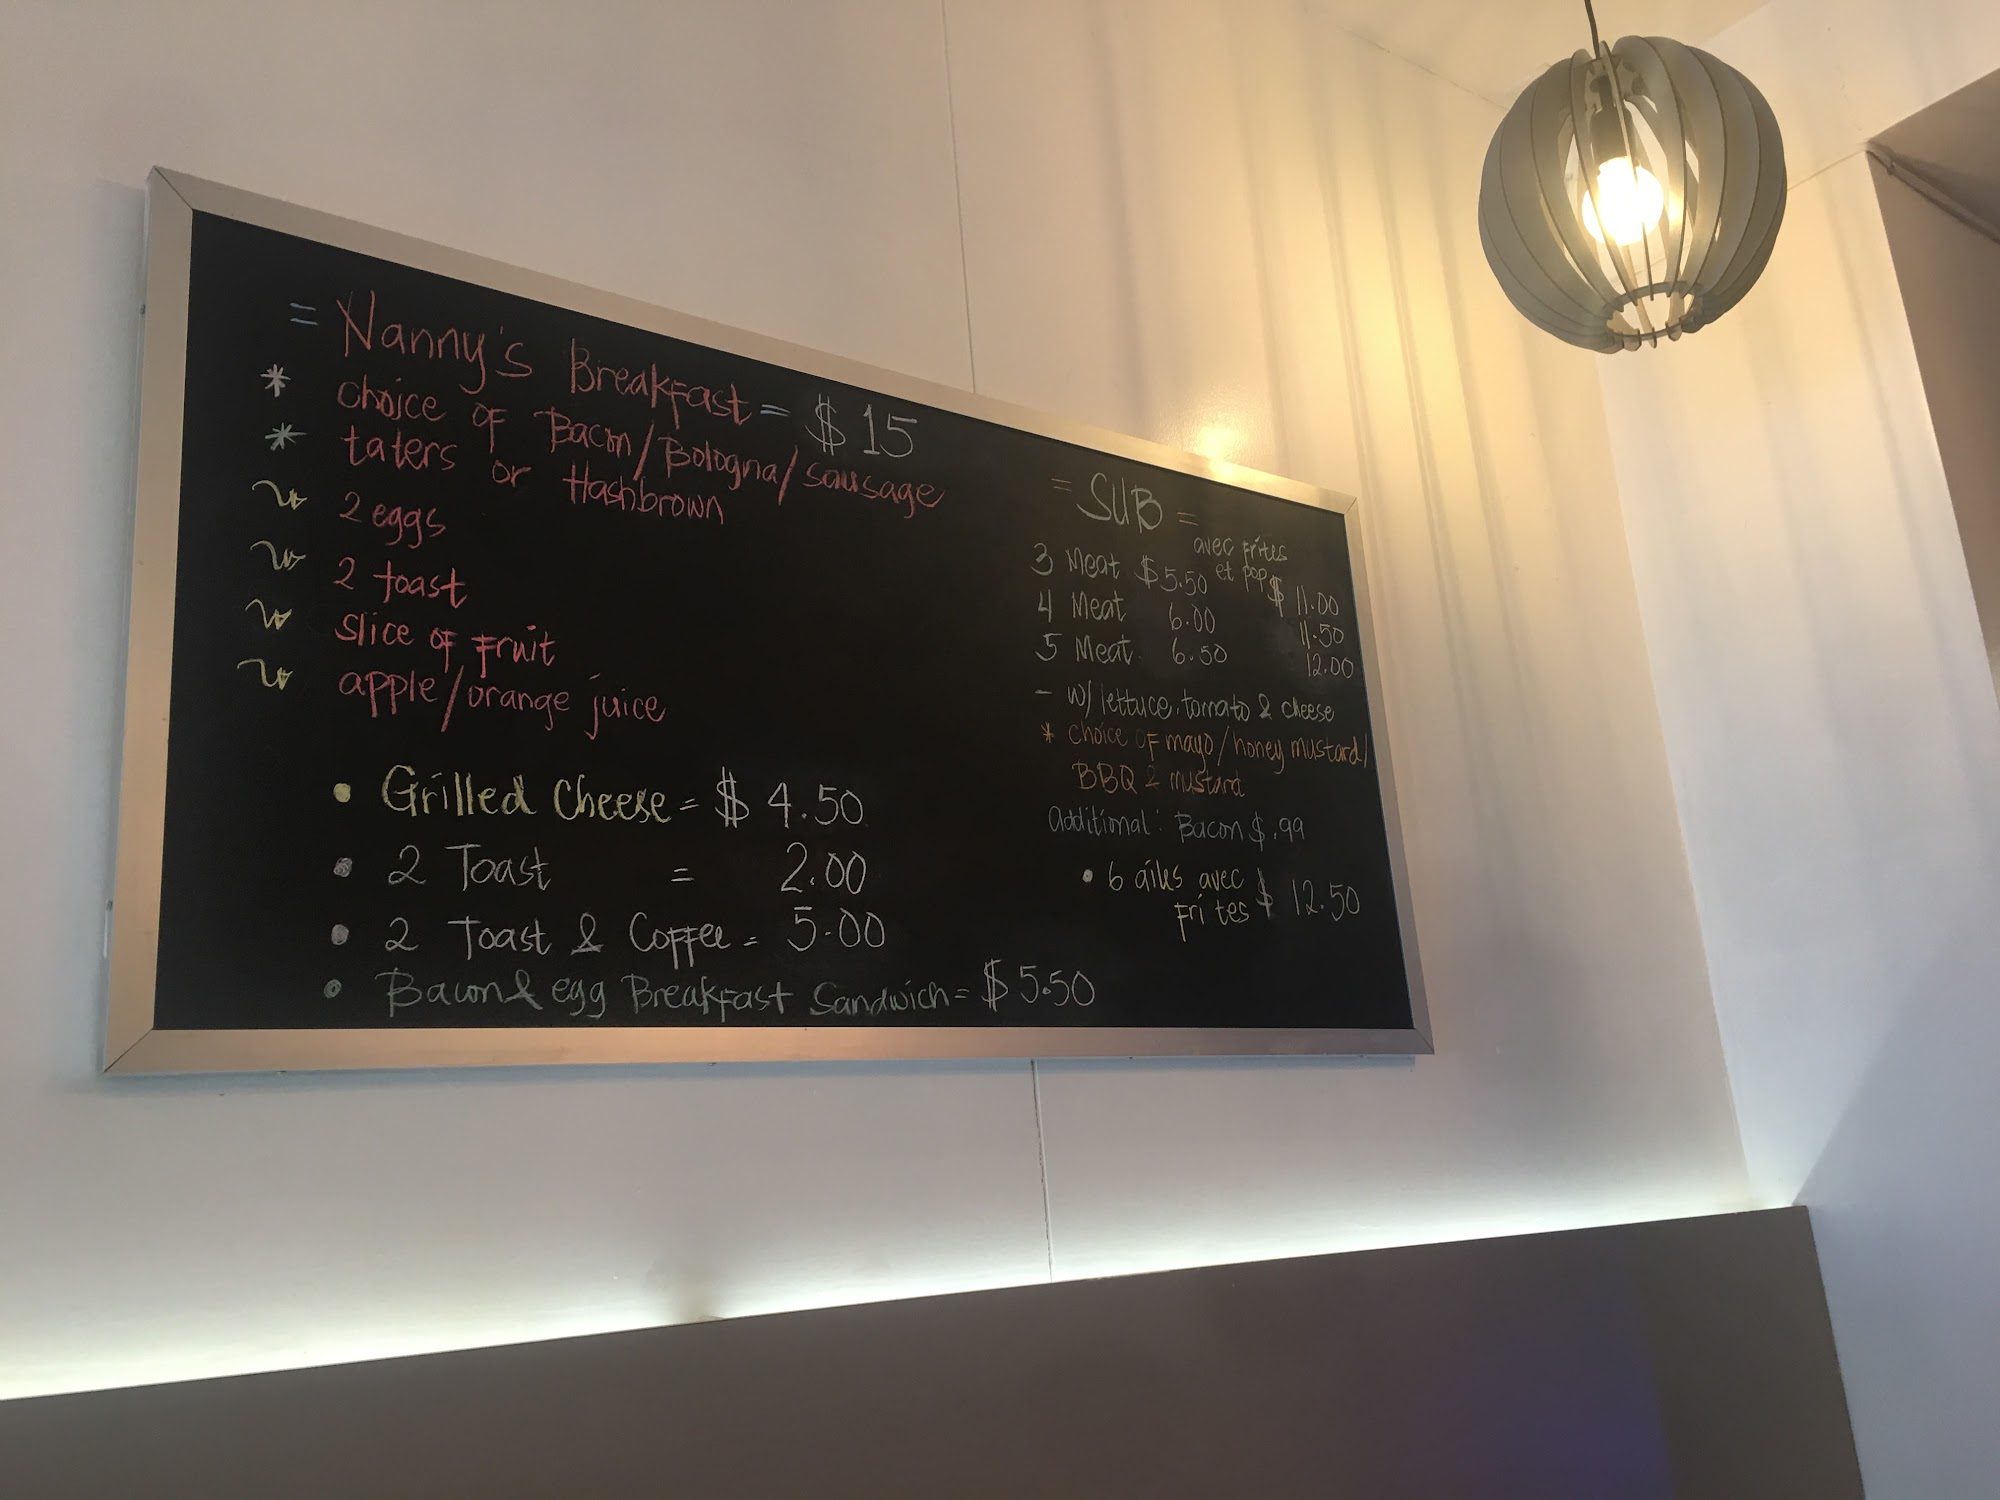 = Nanny's Breakfast = $15
* choice of Bacon/Bologna/sausage
* taters or Hashbrown
2 eggs
2 toast
slice of fruit
apple/orange juice
• Grilled Cheese = $4.50
• 2 Toast = 2.00
• 2 Toast & Coffee = 5.00
• Bacon & egg Breakfast Sandwich = $5.50
= SUB =
avec frites
et pop
3 Meat $5.50 $11.00
4 Meat 6.00 11.50
5 Meat 6.50 12.00
- w/ lettuce, tomato & cheese
* choice of mayo/honey mustard/
BBQ & mustard
Additional: Bacon $.99
• 6 ailes avec
frites $12.50